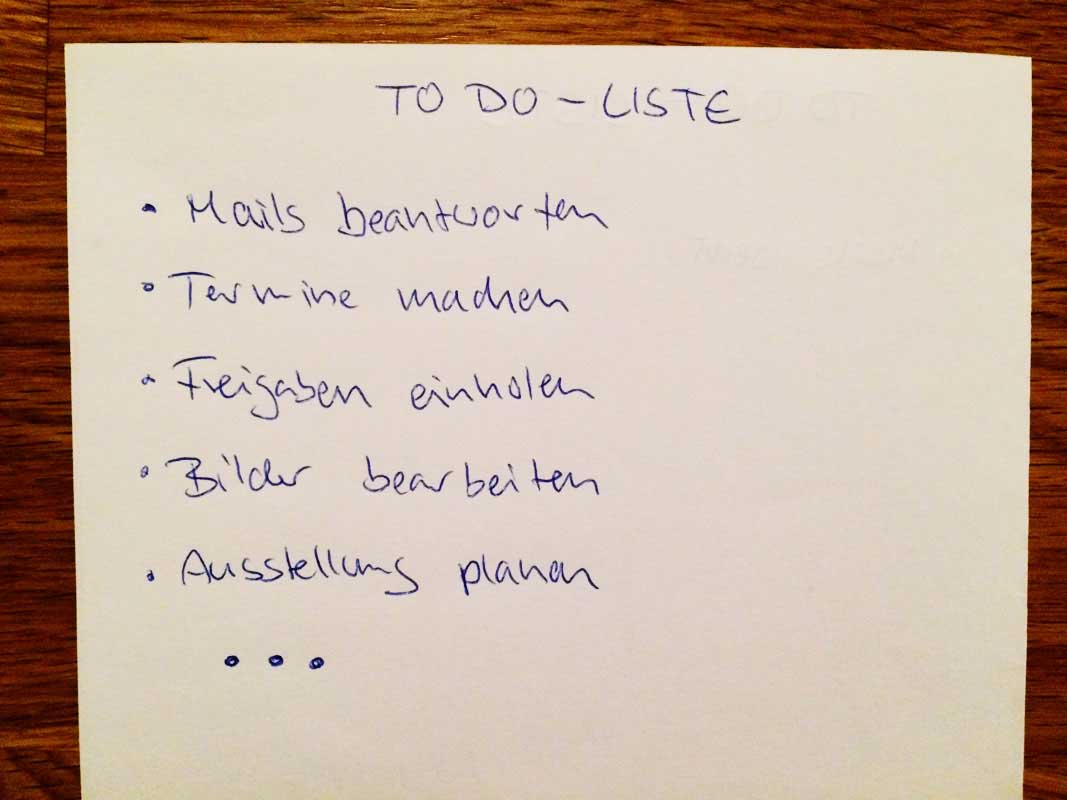 TO DO - LISTE
• Mails beantworten
• Termine machen
• Freigaben einholen
• Bilder bearbeiten
• Ausstellung planen
• • •